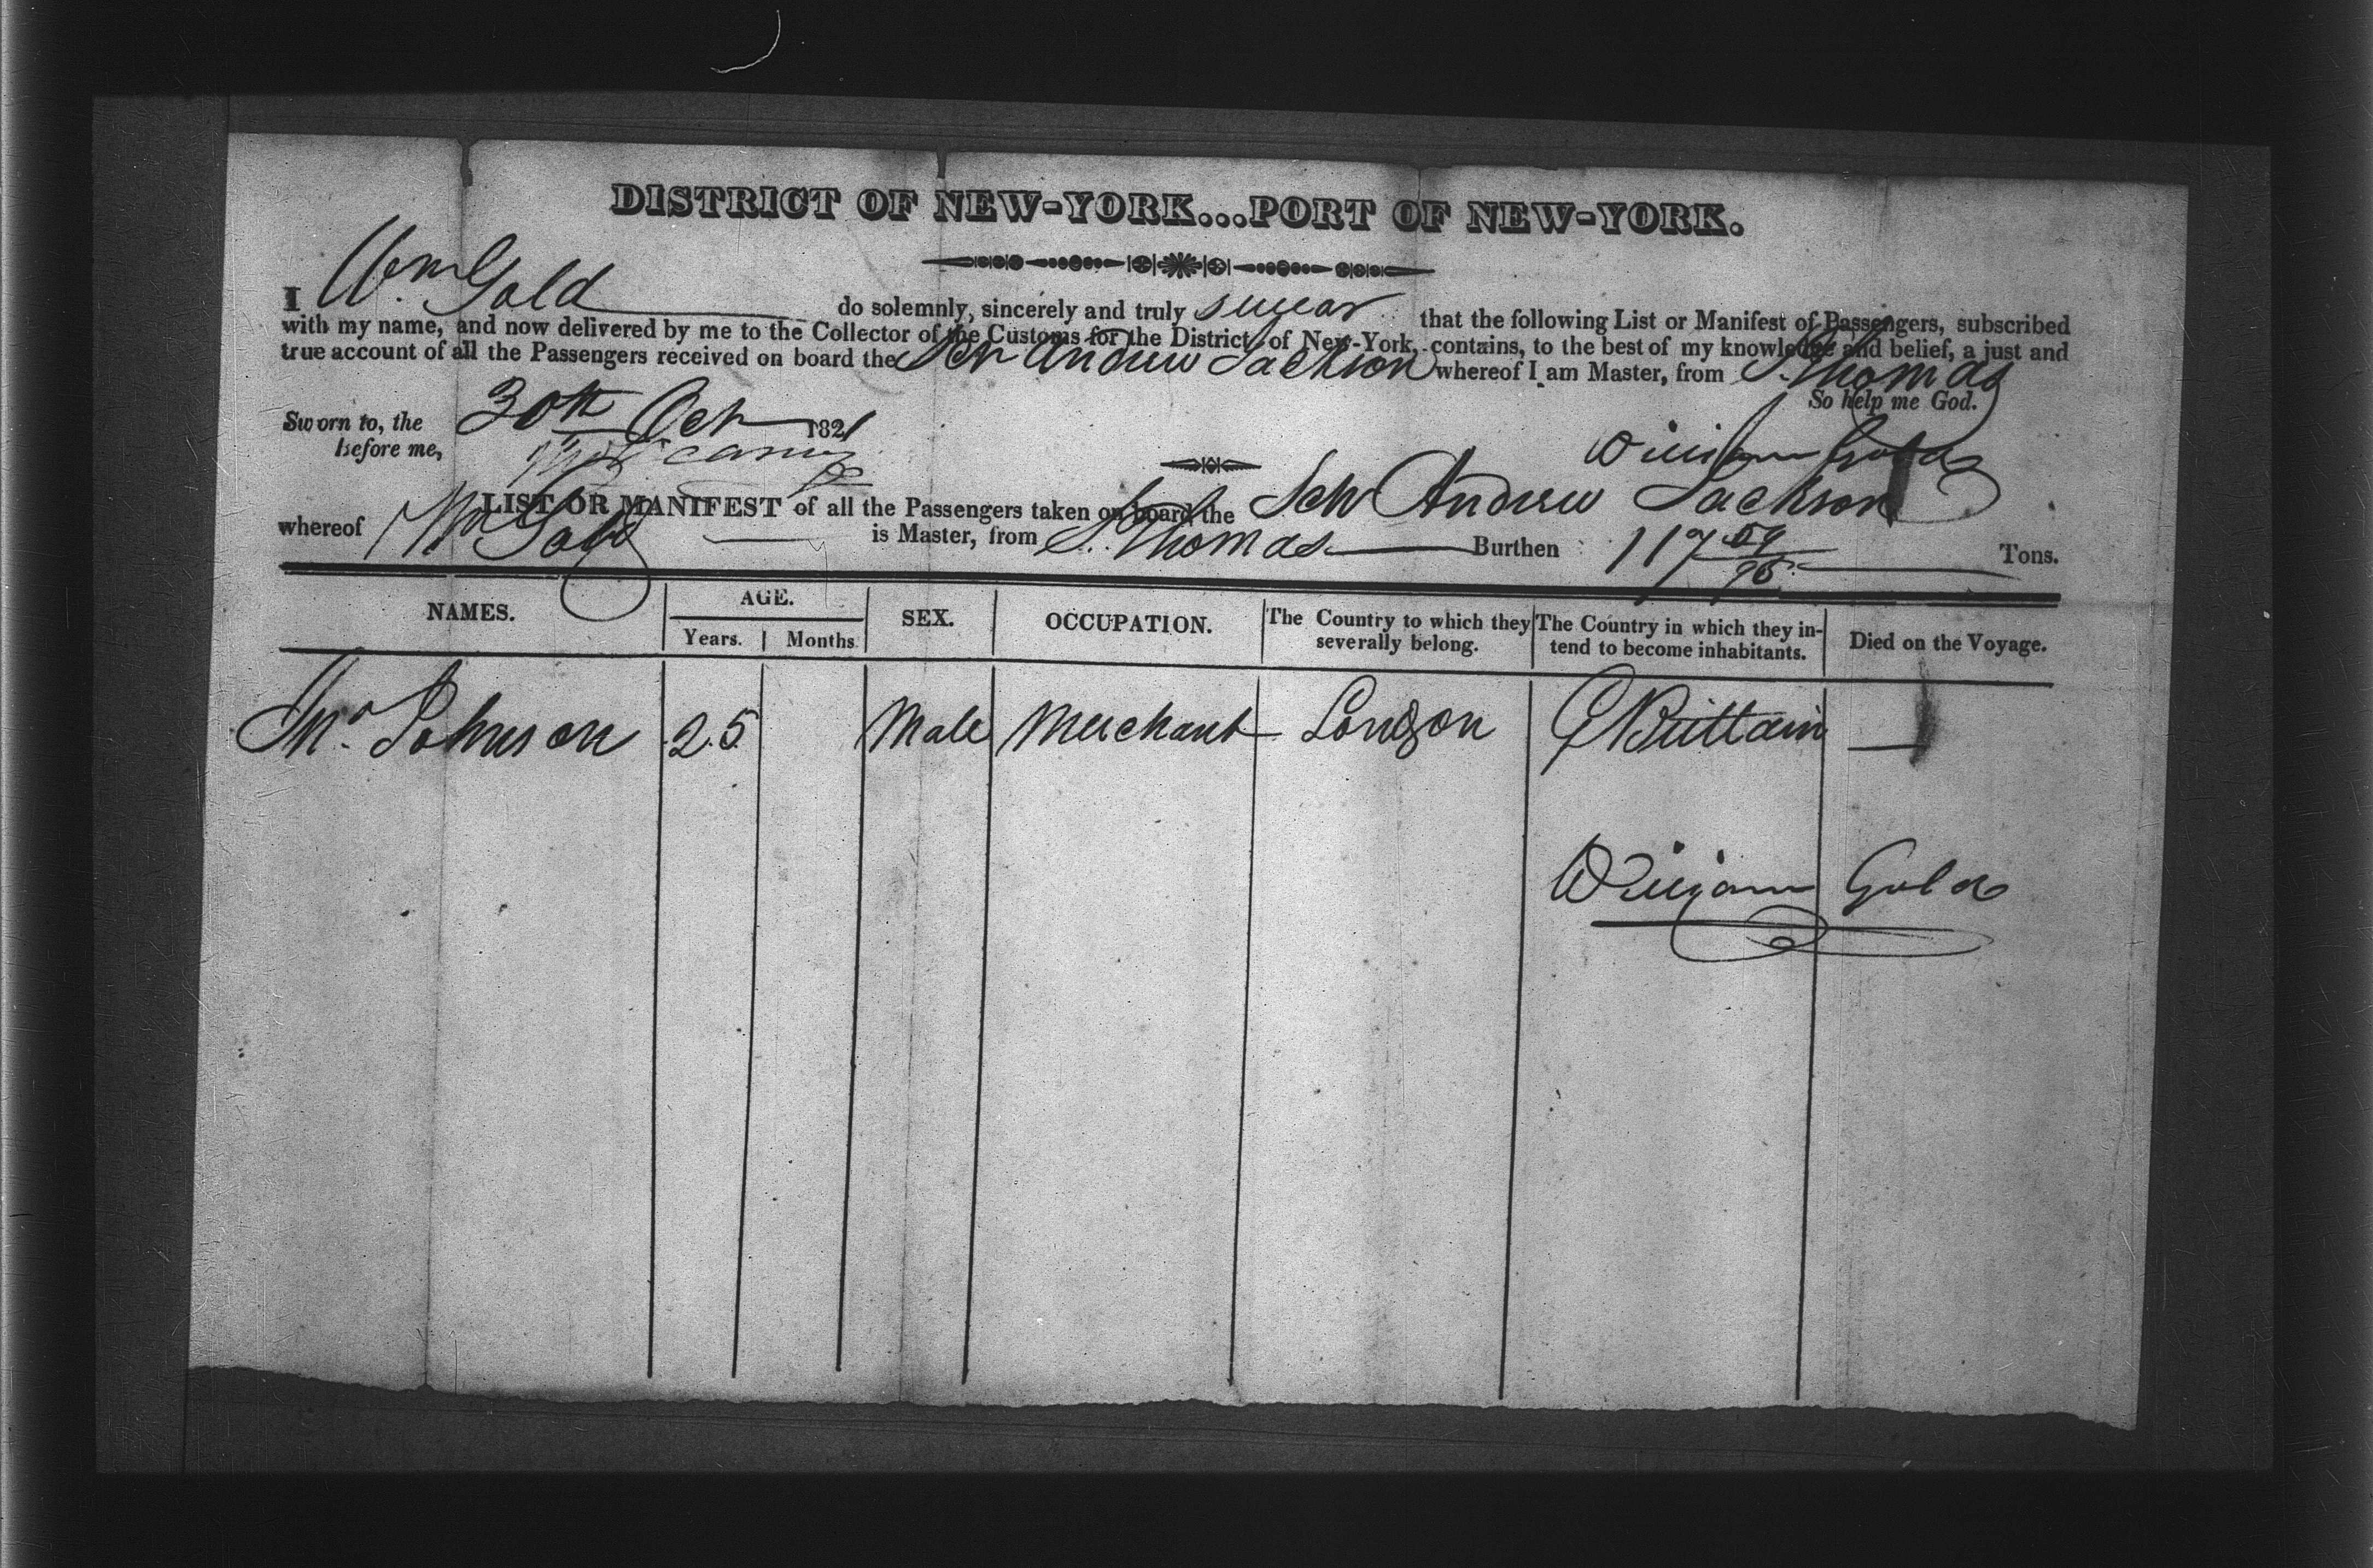 DISTRICT OF NEW-YORK...PORT OF NEW-YORK.
I Wm Gold do solemnly, sincerely and truly swear that the following List or Manifest of Passengers, subscribed
with my name, and now delivered by me to the Collector of the Customs for the District of New-York, contains, to the best of my knowledge and belief, a just and
true account of all the Passengers received on board the Schr Andrew Jackson whereof I am Master, from St. Thomas
So help me God.
Sworn to, the 30th Oct 1821
before me,
William Gold
LIST OR MANIFEST of all the Passengers taken on board the Schr Andrew Jackson
whereof Wm Gold is Master, from St. Thomas Burthen 117 59/95 Tons.
NAMES. AGE. SEX. OCCUPATION. The Country to which they severally belong. The Country in which they intend to become inhabitants. Died on the Voyage.
Years. Months.
Jno. Johnson 25 Male Merchant London G Brittain —
William Gold